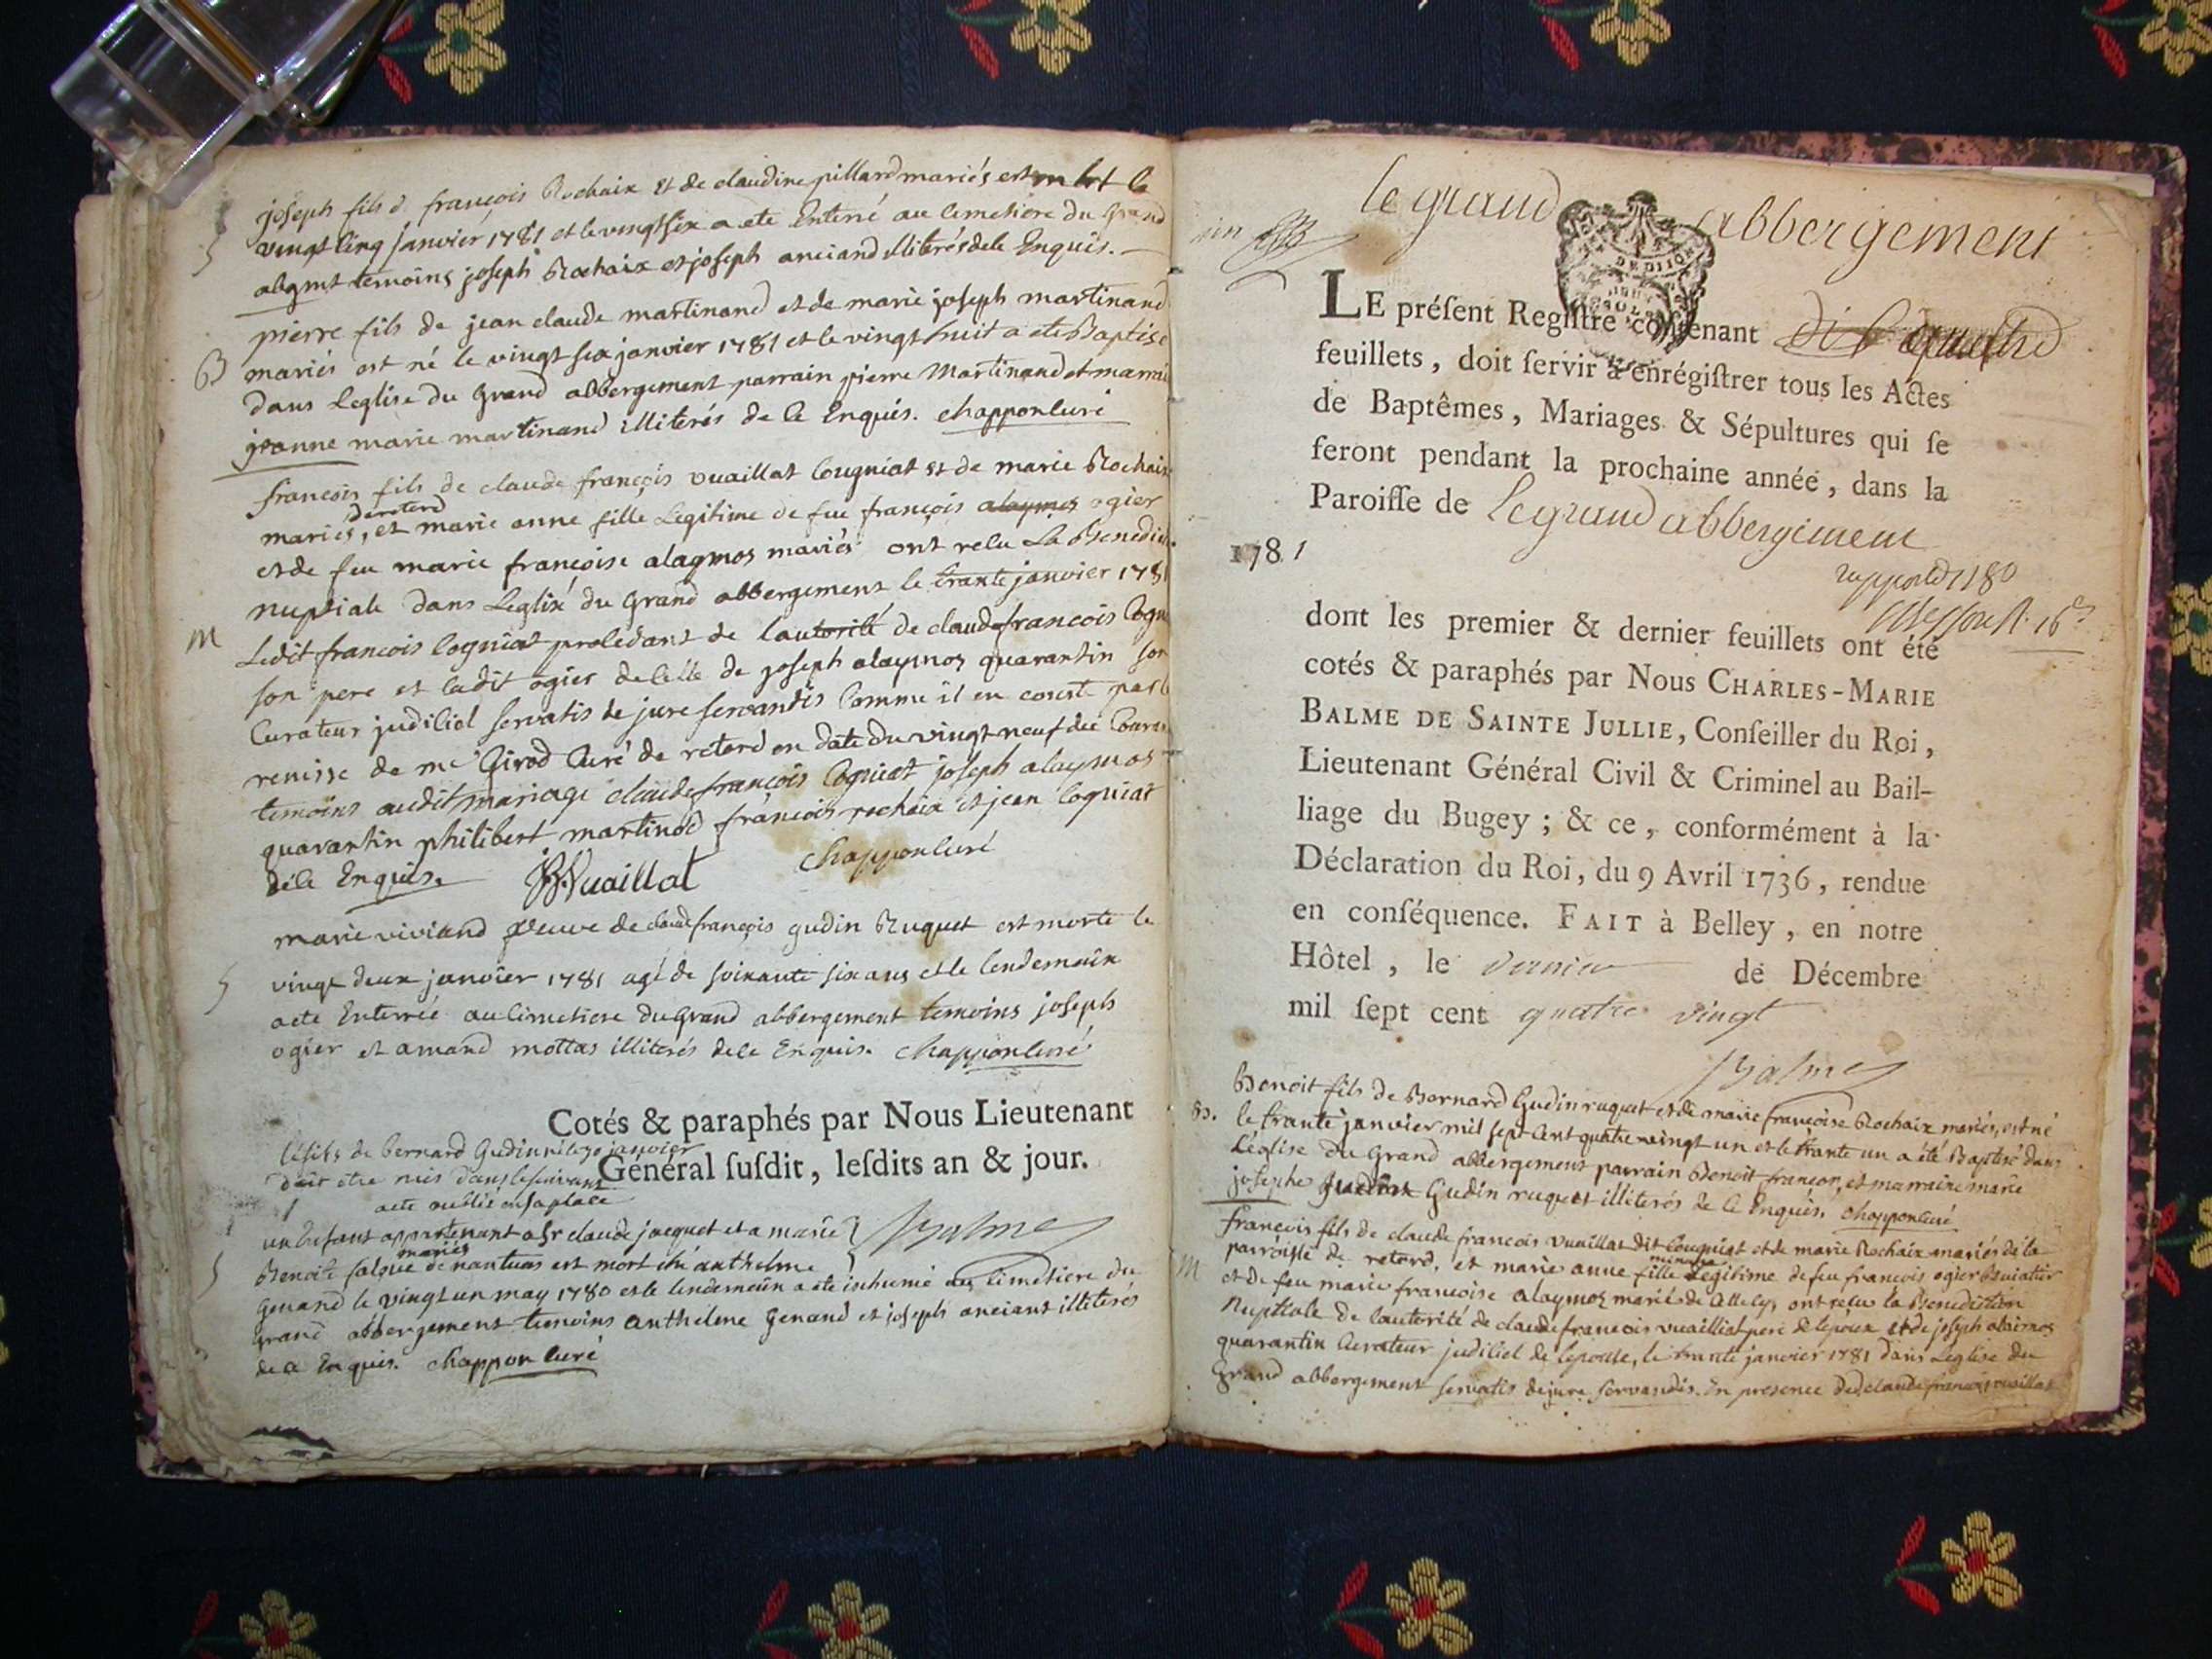 joseph fils d françois Rochaix et de claudine pillard mariés est mort le
vingt cinq janvier 1781 et le vingt six a ete Enterré au cimetiere du Grand
abgmt temoins joseph Rochaix et joseph anciand illiterés de ce Enquis.
S
pierre fils de jean claude martinand et de marie joseph martinand
mariés est né le vingt six janvier 1781 et le vingt huit a ete Baptisé
B
dans Leglise du Grand abbergement parrain pierre Martinand et marrai
jeanne marie martinand illiterés de ce Enquis. chappon curé
francois fils de claude françois vuaillat Cougniat et de marie Rochaix
de retord
mariés, et marie anne fille Legitime de feu françois alaymos ogier
et de feu marie françoise alaymos mariés ont relu La Benedict
nuptiale dans Leglise du Grand abbergement le trante janvier 1781
M
Ledit francois Cogniat procedant de lautorité de claude francois Cogn
son pere et ladit ogier de celle de joseph alaymos quarantin son
Curateur judiciel servatis de jure servandis Comme il en conste par l
remisse de mre Girod Curé de retord en date du vingt neuf du Couran
temoins audit mariage claude françois Cogniat joseph alaymos
quarantin philibert martinod françois rochaix et jean Cogniat
de ce Enquis. JB Vuaillat chappon curé
marie viviand veuve de claude françois gudin Ruquet est morte le
vingt deux janvier 1781 agé de soixante six ans et le lendemain
S
a ete Enterrée au Cimetiere du Grand abbergement temoins joseph
ogier et amand mottas illiterés de ce Enquis. chappon curé
Cotés & paraphés par Nous Lieutenant
Général susdit, lesdits an & jour.
le fils de bernard Gudin né le 30 janvier
doit etre mis dans le suivant
acte oublié en sa place
un Enfant appartenant a Sr claude jacquet et a marie
Balme
mariés
Benoite de nantuas est mort ché anthelme
S
Genand le vingt un may 1780 et le lendemain a ete inhumé au Cimetiere du
grand abbergement temoins anthelme Genand et joseph anciant illiterés
de ce Enquis. chappon curé
le grand abbergement
DE DIJON
LE présent Registre contenant
feuillets, doit servir à enrégistrer tous les Actes
de Baptêmes, Mariages & Sépultures qui se
feront pendant la prochaine année, dans la
Paroisse de Le grand abbergement
1781
1780
dont les premier & dernier feuillets ont été
cotés & paraphés par Nous CHARLES-MARIE
BALME DE SAINTE JULLIE, Conseiller du Roi,
Lieutenant Général Civil & Criminel au Bail-
liage du Bugey ; & ce, conformément à la
Déclaration du Roi, du 9 Avril 1736, rendue
en conséquence. FAIT à Belley, en notre
Hôtel, le dernier de Décembre
mil sept cent quatre vingt
Balme
Benoit fils de Bernard Gudin ruquet et de marie françoise Rochaix mariés, est né
B.
le trante janvier mil sept Cent quatre vingt un et le trante un a été Baptisé dans
Léglise du Grand abbergement parrain Benoit françon, et marraine marie
josephe Gudin ruquet illiterés de ce Enquis. chappon curé
françois fils de claude francois vuaillat dit Cougniat et de marie Rochaix mariés de la
parroisse de retord, et marie anne fille mineure Legitime de feu francois ogier
M
et de feu marie francoise alaymoz mariés ont relu la Benediction
Nuptiale de lautorité de claude francois vuailliat pere de lepoux et de joseph alaimos
quarantin Curateur judiciel de lepouse, le trante janvier 1781 dans Leglise du
Grand abbergement servatis de jure servandis. En presence de claude francois vuaillat